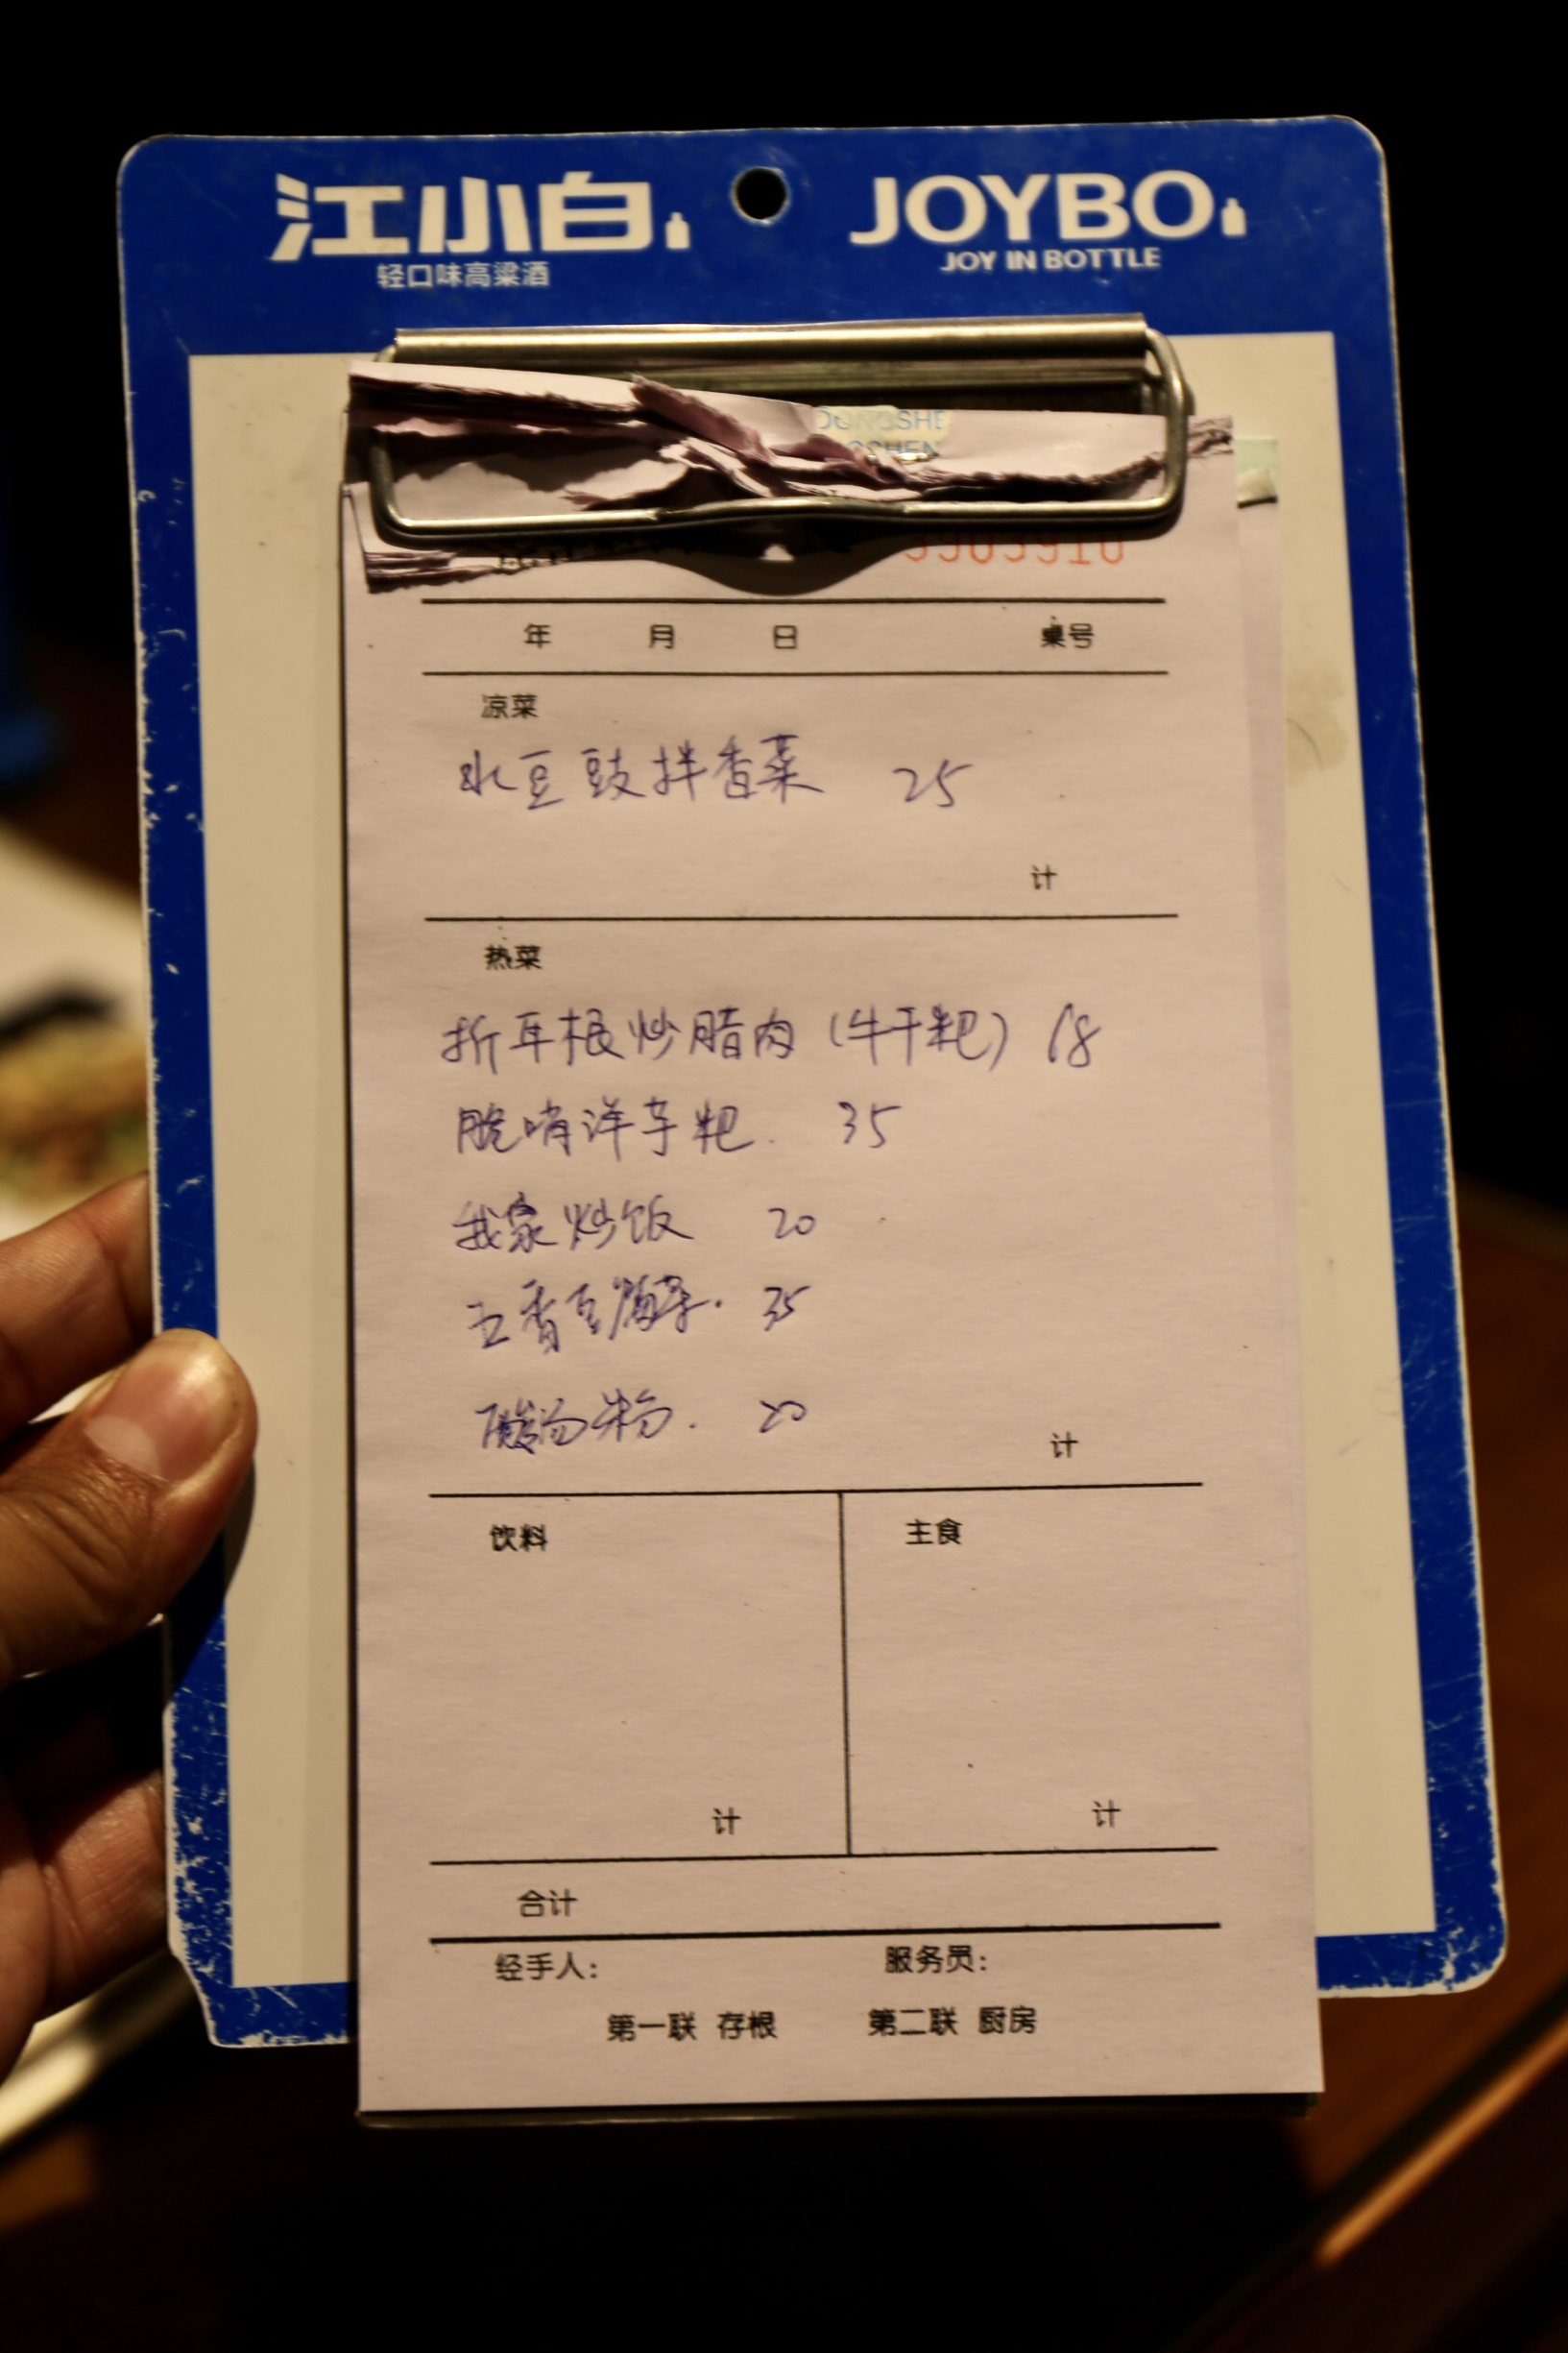 江小白 JOYBO
轻口味高粱酒 JOY IN BOTTLE
年 月 日 桌号
凉菜
水豆豉拌香菜 25
计
热菜
折耳根炒腊肉(牛干粑) 68
脆哨洋芋粑. 35
我家炒饭 20
五香豆腐. 35
酸汤粉. 20
计
饮料 主食
计 计
合计
经手人: 服务员:
第一联 存根 第二联 厨房